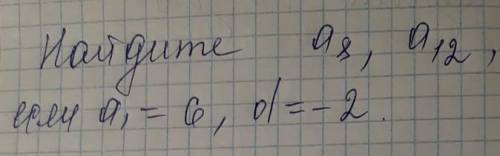 Найдите a₈, a₁₂,
если a₁ = 6, d = -2.